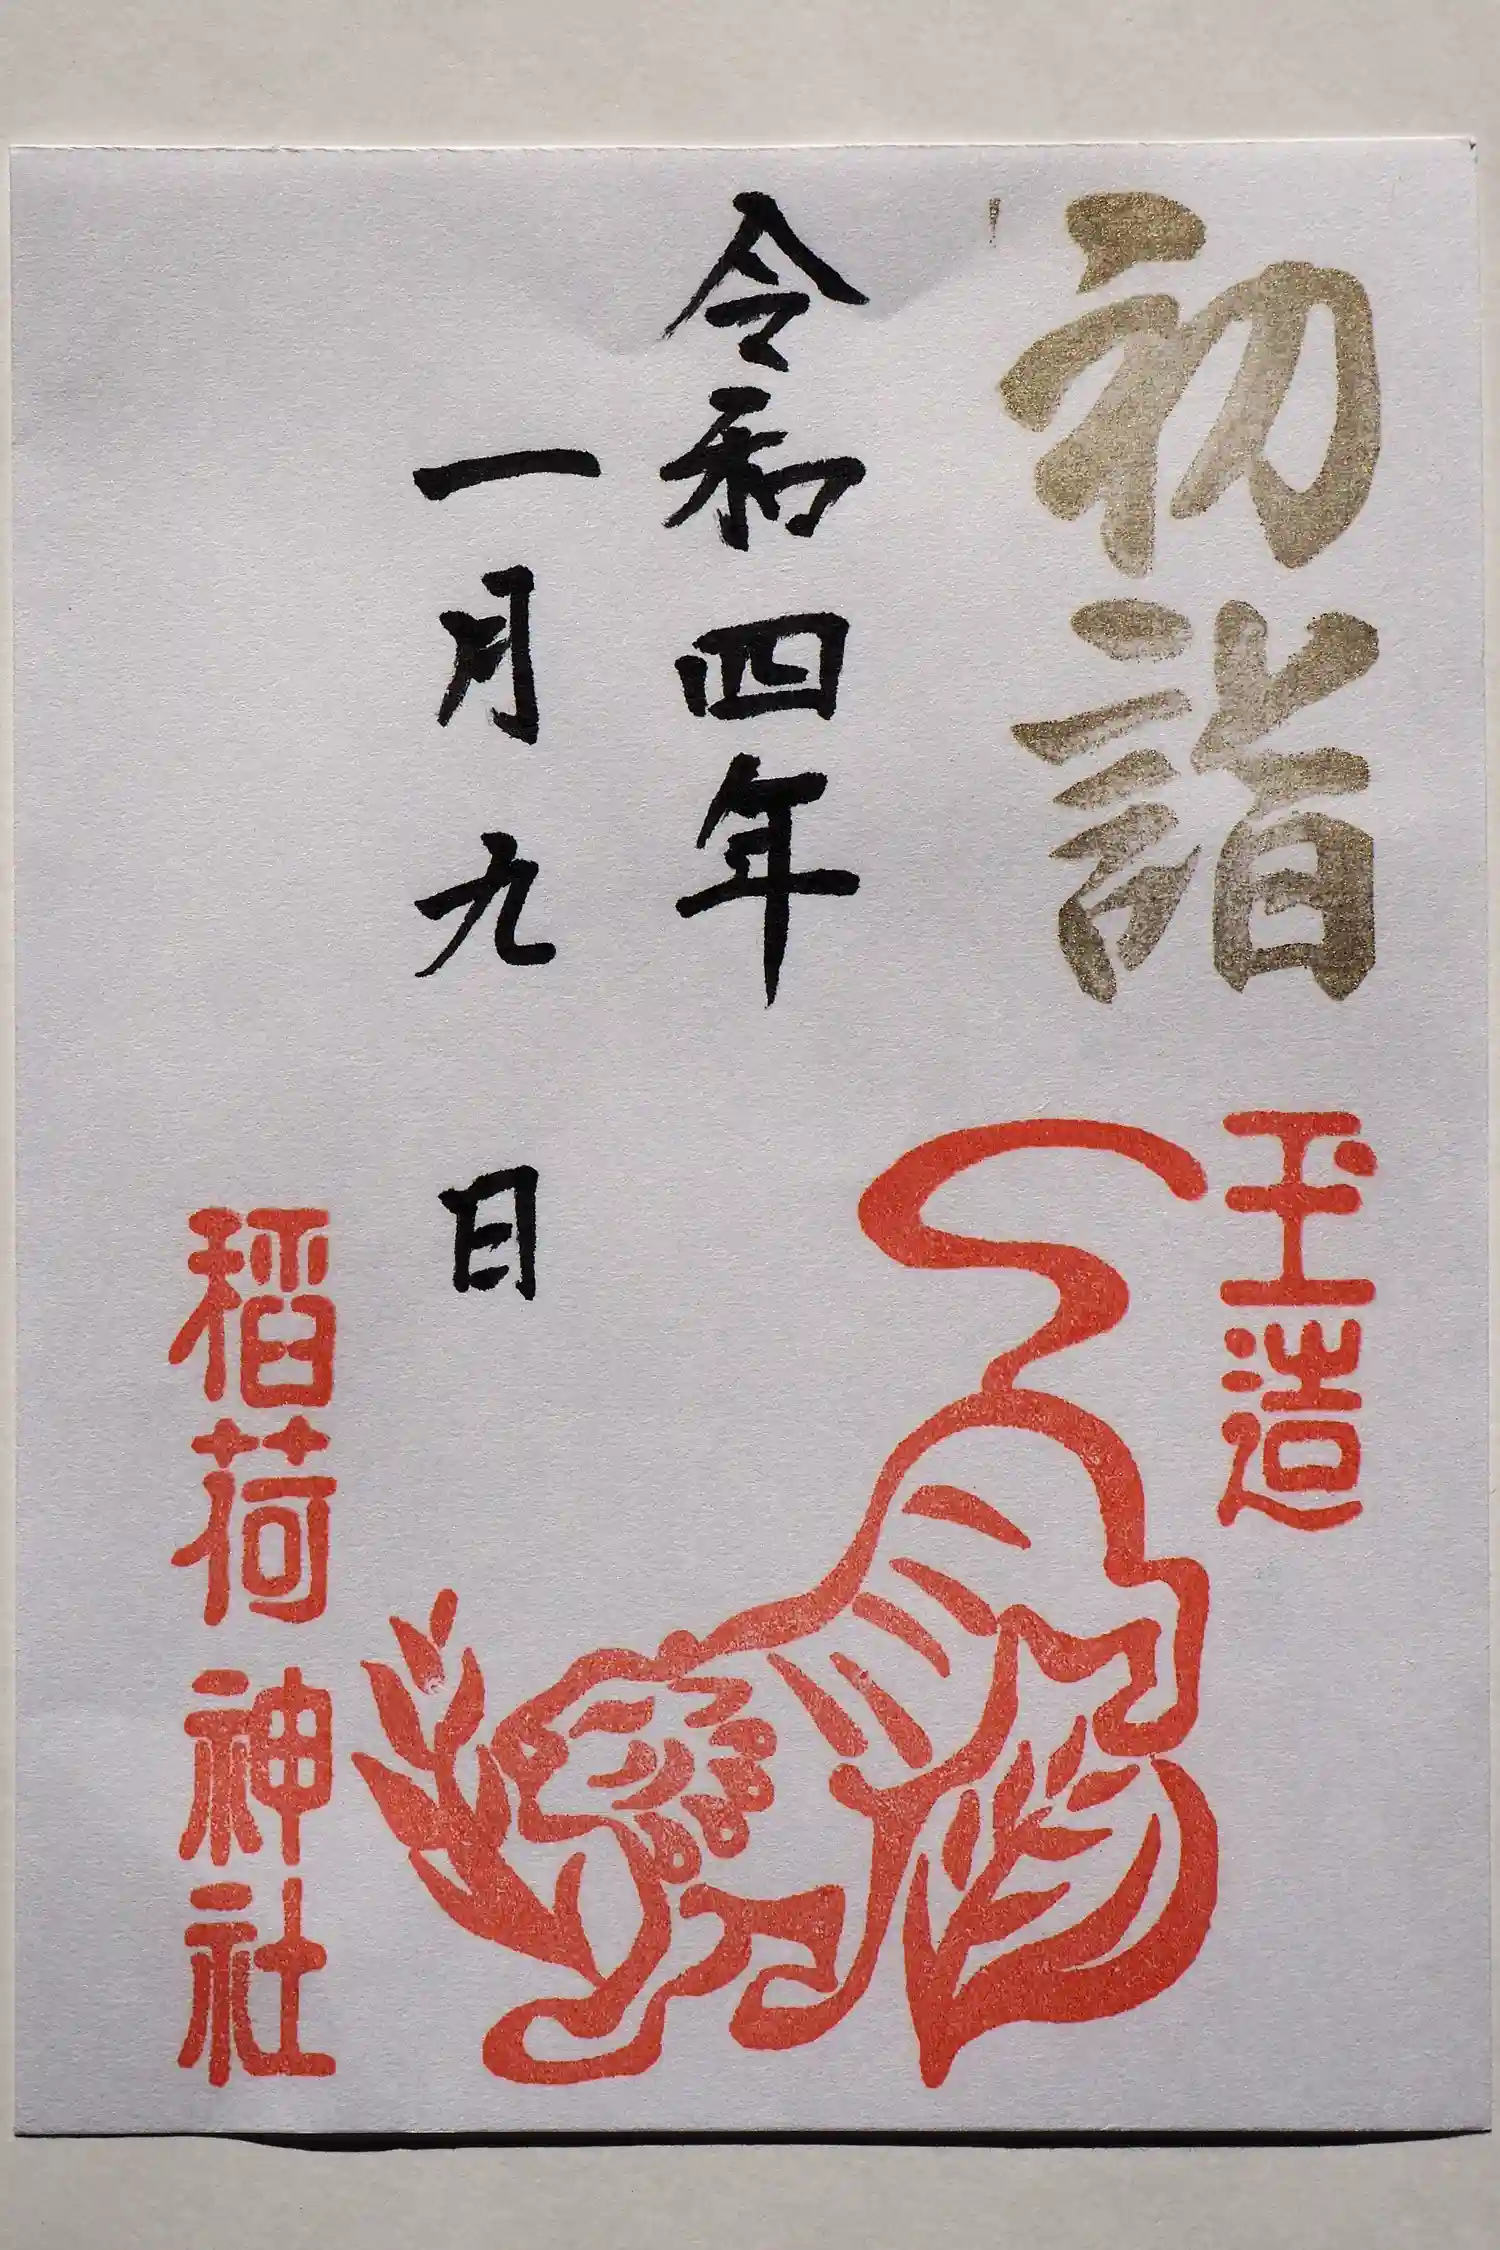 初詣
玉造
令和四年
一月九日
稲荷神社